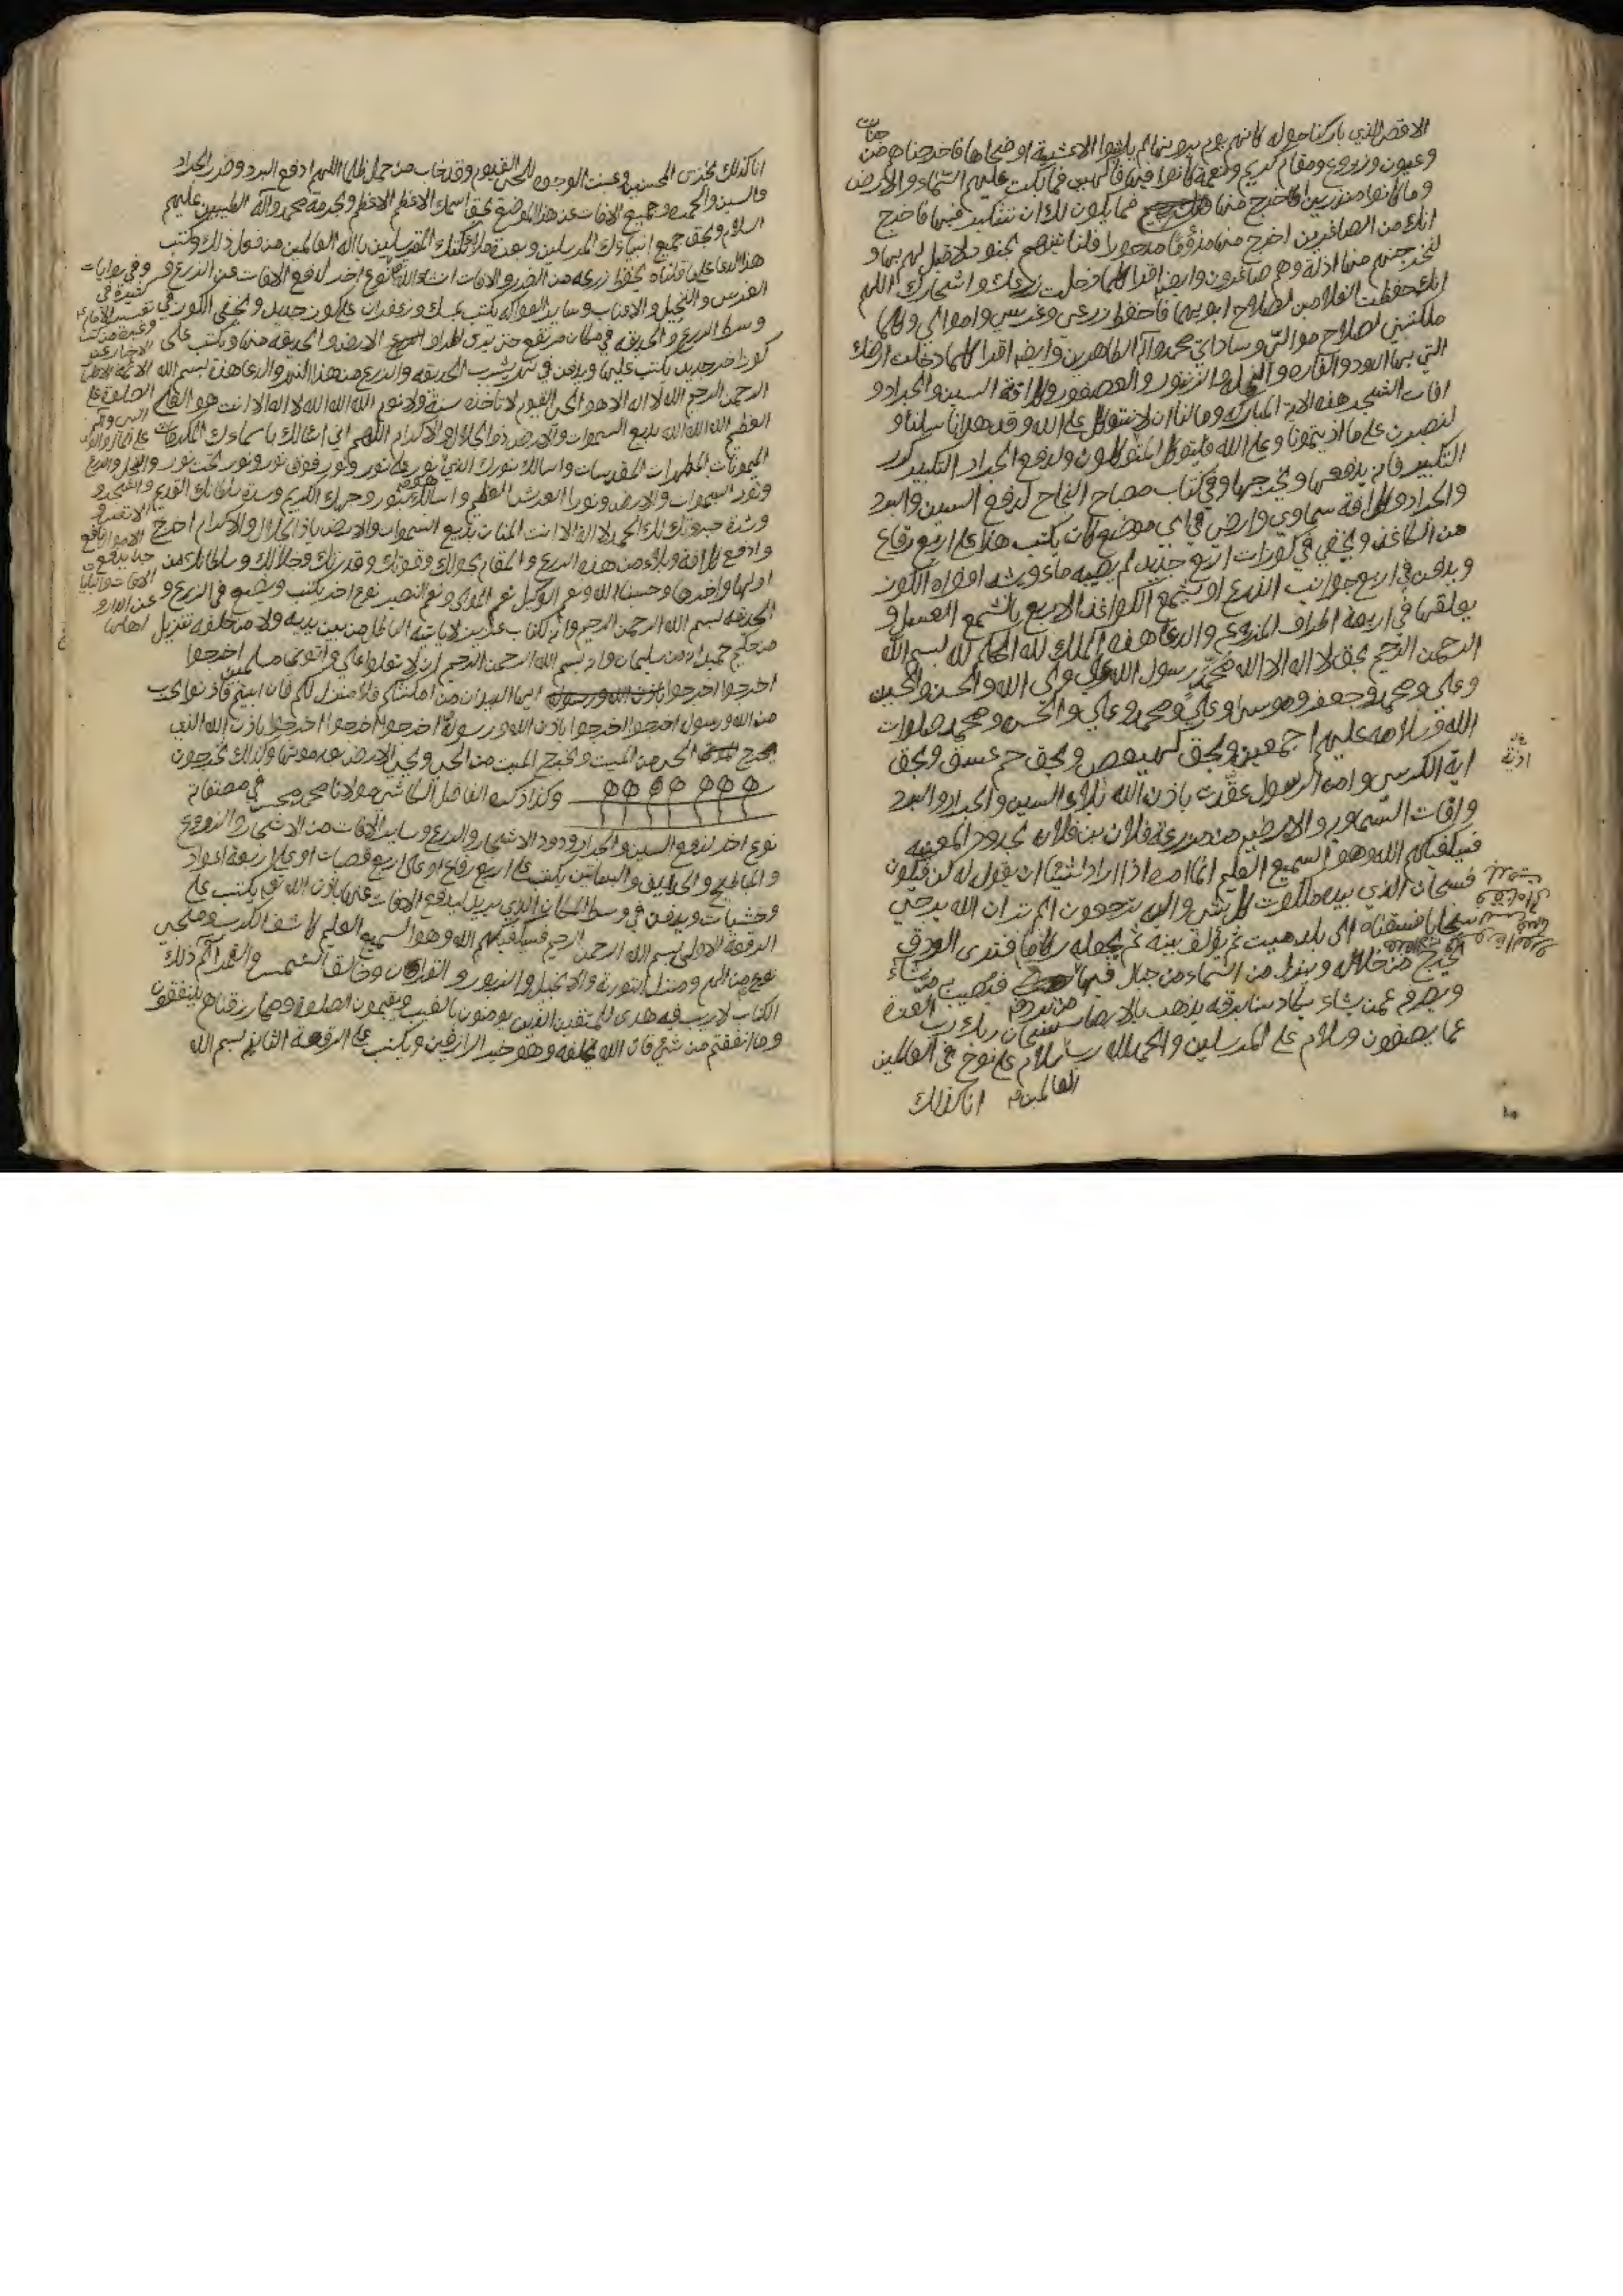 الاقصى الذي باركنا حوله كانهم يوم يرونها لم يلبثوا الا عشية او ضحاها فاخرجناهم من جنات
وعيون وزروع ومقام كريم ونعمة كانوا فيها فاكهين فما بكت عليهم السماء والارض
وما كانوا منظرين فاخرج منها فما يكون لك ان تتكبر فيها فاخرج
انك من الصاغرين اخرج منها مذؤما مدحورا فلنأتينهم بجنود لا قبل لهم بها و
لنخرجنهم منها اذلة وهم صاغرون وايضا اقرا كلما دخلت زرعك واشجارك اللهم
انك حفظت الغلامين لصلاح ابويهما فاحفظ زرعي وغرسي واموالي وكلما
ملكتني لصلاح موالي وساداتي محمد وآله الطاهرين وايضا اقرا كلما دخلت ارضك
التي بها الدود والفاره والنمله والزنبور والعصفور وكل آفة السين والجراد و
افات الشجر هذه الاية المباركة وما لنا ان لا نتوكل على الله وقد هدانا سبلنا و
لنصبرن على ما اذيتمونا وعلى الله فليتوكل المتوكلون ولدفع الجراد التكبير كرر
التكبير فانه يدفعها ويخرجها وفي كتاب مصباح النجاح لدفع السين والبرد
والجراد وكل افة سماوي وارضي في اي موضع كان يكتب هذا على اربع رقاع
من الكاغذ ويخفي في كوزات اربع جديد لم يصبه ماء ويشد افواه الكوز
ويدفن في اربع جوانب الزرع او يشمع الكواغذ الاربع بالشمع العسل و
يعلقها في اربعة اطراف المزرع والدعا هذه الملك لله الحكم لله بسم الله
الرحمن الرحيم بحق لا اله الا الله محمد رسول الله علي ولي الله والحسن والحسين
وعلي ومحمد وجعفر وموسى وعلي ومحمد وعلي والحسن ومحمد صلوات
الله وسلامه عليهم اجمعين وبحق كهيعص وبحق حم عسق وبحق
اية الكرسي وامن الرسول عقدت باذن الله بلاء السين والجراد والبرد
وافات السماوي والارضي من مزرعة فلان بن فلان بحدود المعينه
فسيكفيكهم الله وهو السميع العليم انما امره اذا اراد شيئا ان يقول له كن فيكون
فسبحان الذي بيده ملكوت كل شئ واليه ترجعون الم تر ان الله يزجي
سحابا فسقناه الى بلد ميت ثم يؤلف بينه ثم يجعله ركاما فترى الودق
يخرج من خلاله وينزل من السماء من جبال فيها من برد فيصيب به من يشاء
ويصرفه عمن يشاء يكاد سنا برقه يذهب بالابصار سبحان ربك رب العزة
عما يصفون وسلام على المرسلين والحمد لله رب العالمين سلام على نوح في العالمين
انا كذلك
انا كذلك نجزي المحسنين وعنت الوجوه للحي القيوم وقد خاب من حمل ظلما اللهم ادفع البرد وضرر الجراد
والسين والحمة وجميع الافات عن هذا الموضع بحق اسمك الاعظم الاعظم وبحرمة محمد وآله الطيبين عليهم
السلام وبحق جميع انبيائك المرسلين وبعدة ملائكتك المقربين يا اله العالمين من فعل ذلك وكتب
هذا الدعا على ما قلناه يحفظ زرعه من الضرر والافات انشاء الله نوع اخر لدفع الافات عن الزرع و
الغرس والنخيل والاعناب وساير الفواكه يكتب بمسك وزعفران على كوز جديد ويخفى الكوز في
وسط الزرع والحديقه في مكان مرتفع حتى يرى اطراف الارض والحديقه منها ويكتب على
كوز اخر جديد يكتب عليها ويدفن في نهر يشرب الحديقه والزرع من هذا النهر والدعا هذه بسم الله
الرحمن الرحيم الله لا اله الا هو الحي القيوم لا تأخذه سنة ولا نوم الله الله الله لا اله الا انت هو العلي
العظيم الله الله الله بديع السموات والارض ذو الجلال والاكرام اللهم اني اسالك باسماءك المكرمات
الميمونات المطهرات المقدسات واسالك بنورك الذي نور على نور ونور فوق نور ونور تحت نور
ونور السموات والارض ونور العرش العظيم واسالك بنور وجهك الكريم وسدة سلطانك القديم
وشدة جبروتك لك الحمد لا اله الا انت المنان بديع السموات والارض يا ذا الجلال والاكرام اخرج
وادفع كل افة وبلاء من هذه الزرع والمقام بحولك وقوتك وقدرتك وجلالك وسلطانك من
اولها واخرها وحسبنا الله ونعم الوكيل نعم المولى ونعم النصير نوع اخر يكتب ويضع في الزرع و
الحديقه بسم الله الرحمن الرحيم وانه لكتاب عزيز لا ياتيه الباطل من بين يديه ولا من خلفه تنزيل
من حكيم حميد انه من سليمان وانه بسم الله الرحمن الرحيم ان لا تعلوا علي واتوني مسلمين اخرجوا
اخرجوا اخرجوا ايها الديدان من امكنتكم فلا منزل لكم فان ابيتم فاذنوا بحرب
من الله ورسوله اخرجوا اخرجوا باذن الله ورسوله اخرجوا اخرجوا اخرجوا باذن الله الذي
يخرج الحي من الميت ويخرج الميت من الحي ويحيي الارض بعد موتها وكذلك تخرجون
وكذا ذكره الفاضل الكاشي مولانا محمد محسن في مصنفاته
نوع اخر لدفع السين والجراد ودود الاشجار والزرع وساير الافات من الاشجار والزروع
والبطايخ والحدايق والبساتين يكتب على اربع رقاع او على اربع قصبات او على اربعة اعواد
وخشبات ويدفن في وسط المكان الذي يريد ليدفع الافات عنها باذن الله تع يكتب على
الرقعة الاولى بسم الله الرحمن الرحيم فسيكفيكهم الله وهو السميع العليم كاشف الكرب ومنجي
نوح من اليم ومنزل التورية والانجيل والزبور والفرقان وخالق الشمس والقمر الم ذلك
الكتاب لا ريب فيه هدى للمتقين الذين يومنون بالغيب ويقيمون الصلوة ومما رزقناهم ينفقون
وما انفقتم من شئ فان الله يخلفه وهو خير الرازقين ويكتب على الرقعة الثانية بسم الله